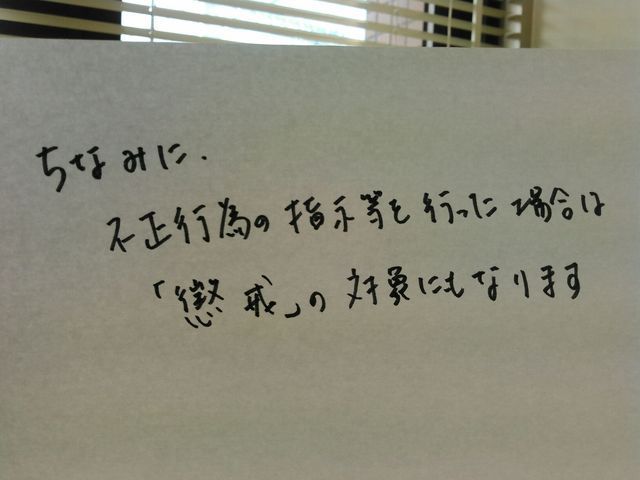 ちなみに、
不正行為の指示等を行った場合は
「懲戒」の対象にもなります